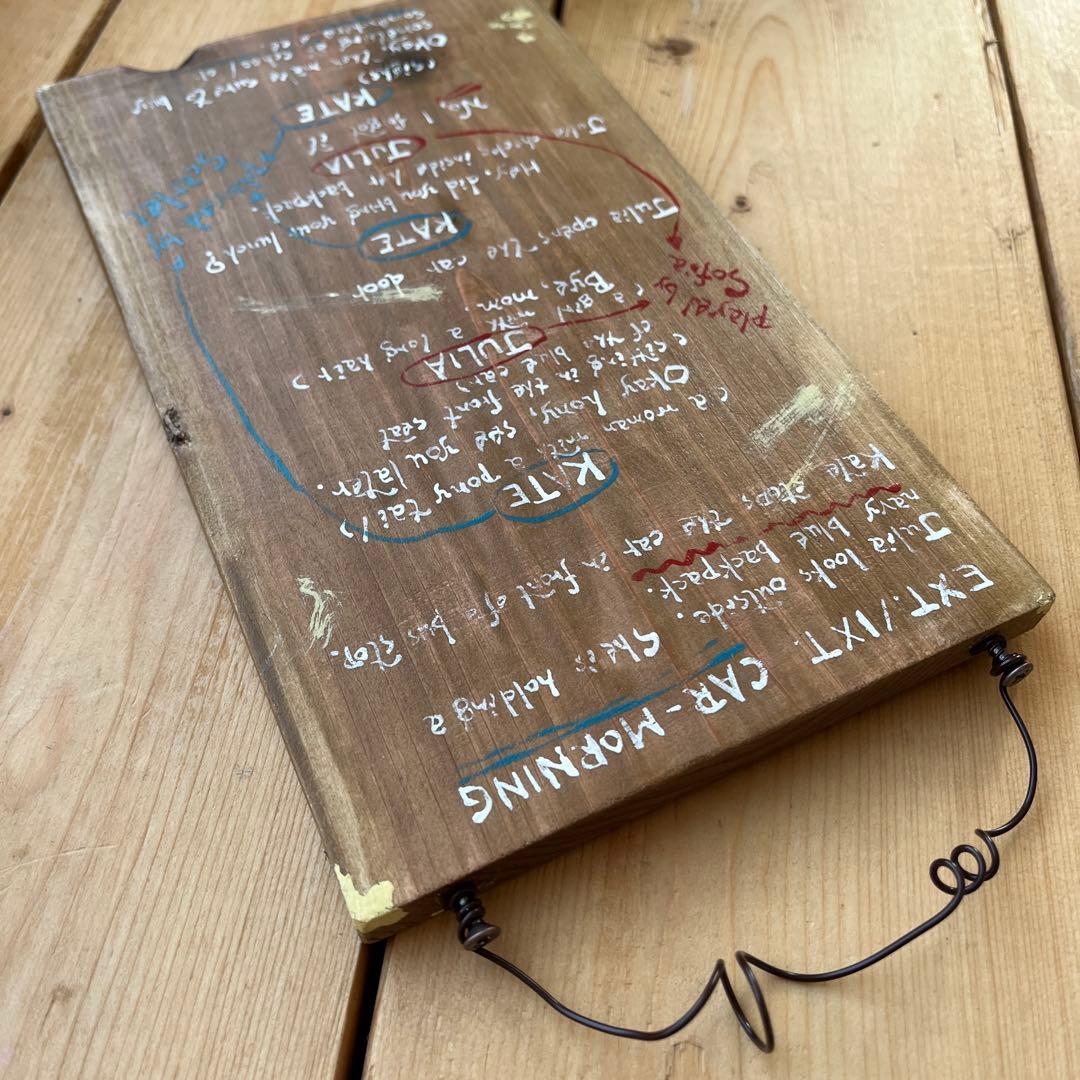 EXT./IXT. CAR-MORNING
Julia looks outside. She is holding a
navy blue backpack.
Kate stops the car in front of a bus stop.
KATE
(a woman with a pony tail)
Okay hony, see you later.
(sitting in the front seat
of the blue car)
JULIA
(a girl with a long hair)
Bye, mom
played by
Sofia
Julia opens the car door
KATE
Hey, did you bring your lunch?
Julia checks inside her backpack.
JULIA
No, I forgot it
KATE
(sighs)
Okay, sure to buy